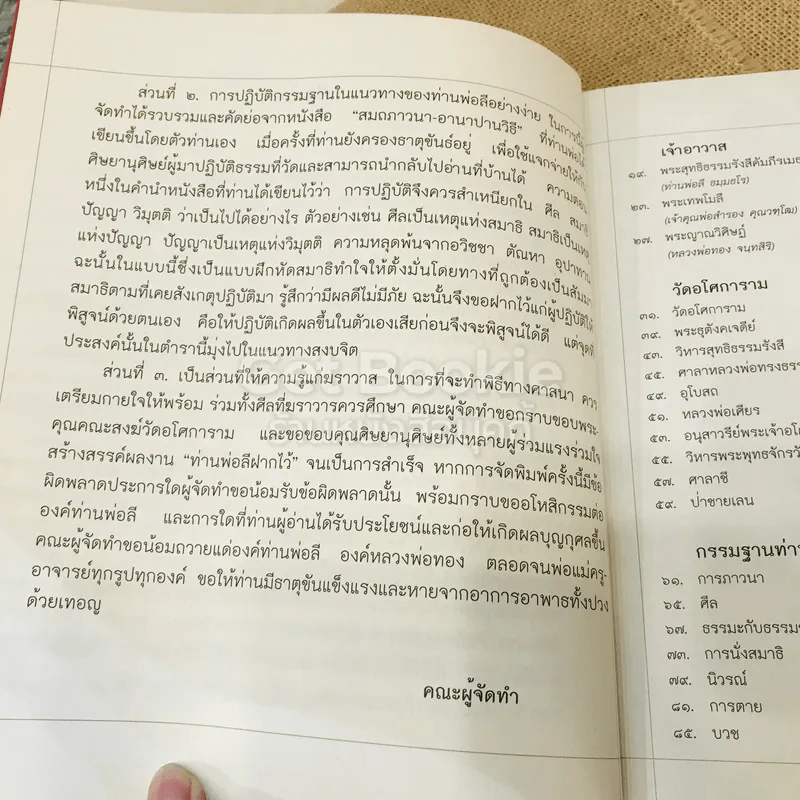 ส่วนที่ ๒. การปฏิบัติกรรมฐานในแนวทางของท่านพ่อลีอย่างง่าย ในการนี้
จัดทำได้รวบรวมและคัดย่อจากหนังสือ “สมถภาวนา-อานาปานวิธี” ที่ท่านพ่อได้
เขียนขึ้นโดยตัวท่านเอง เมื่อครั้งที่ท่านยังครองธาตุขันธ์อยู่ เพื่อใช้แจกจ่ายให้กับ
ศิษยานุศิษย์ผู้มาปฏิบัติธรรมที่วัดและสามารถนำกลับไปอ่านที่บ้านได้ ความตอน
หนึ่งในคำนำหนังสือที่ท่านได้เขียนไว้ว่า การปฏิบัติจึงควรสำเหนียกใน ศีล สมาธิ
ปัญญา วิมุตติ ว่าเป็นไปได้อย่างไร ตัวอย่างเช่น ศีลเป็นเหตุแห่งสมาธิ สมาธิเป็นเหตุ
แห่งปัญญา ปัญญาเป็นเหตุแห่งวิมุตติ ความหลุดพ้นจากอวิชชา ตัณหา อุปาทาน
ฉะนั้นในแบบนี้ซึ่งเป็นแบบฝึกหัดสมาธิทำใจให้ตั้งมั่นโดยทางที่ถูกต้องเป็นสัมมา
สมาธิตามที่เคยสังเกตุปฏิบัติมา รู้สึกว่ามีผลดีไม่มีภัย ฉะนั้นจึงขอฝากไว้แก่ผู้ปฏิบัติได้
พิสูจน์ด้วยตนเอง คือให้ปฏิบัติเกิดผลขึ้นในตัวเองเสียก่อนจึงจะพิสูจน์ได้ดี แต่จุดที่
ประสงค์นั้นในตำรานี้มุ่งไปในแนวทางสงบจิต
ส่วนที่ ๓. เป็นส่วนที่ให้ความรู้แก่ฆราวาส ในการที่จะทำพิธีทางศาสนา ควร
เตรียมกายใจให้พร้อม ร่วมทั้งศีลที่ฆราวารควรศึกษา คณะผู้จัดทำขอกราบขอบพระ-
คุณคณะสงฆ์วัดอโศการาม และขอขอบคุณศิษยานุศิษย์ทั้งหลายผู้ร่วมแรงร่วมใจ
สร้างสรรค์ผลงาน “ท่านพ่อลีฝากไว้” จนเป็นการสำเร็จ หากการจัดพิมพ์ครั้งนี้มีข้อ
ผิดพลาดประการใดผู้จัดทำขอน้อมรับข้อผิดพลาดนั้น พร้อมกราบขออโหสิกรรมต่อ
องค์ท่านพ่อลี และการใดที่ท่านผู้อ่านได้รับประโยชน์และก่อให้เกิดผลบุญกุศลขึ้น
คณะผู้จัดทำขอน้อมถวายแด่องค์ท่านพ่อลี องค์หลวงพ่อทอง ตลอดจนพ่อแม่ครู-
อาจารย์ทุกรูปทุกองค์ ขอให้ท่านมีธาตุขันแข็งแรงและหายจากอาการอาพาธทั้งปวง
ด้วยเทอญ
คณะผู้จัดทำ
Get Bookie
ร้านหนังสือมุดตี้
เจ้าอาวาส
๑๙. พระสุทธิธรรมรังสีคัมภีรเมธ
(ท่านพ่อลี ธมฺมธโร)
๒๓. พระเทพโมลี
(เจ้าคุณพ่อสำรอง คุณวฑฺโฒ)
๒๗. พระญาณวิศิษฏ์
(หลวงพ่อทอง จนฺทสิริ)
วัดอโศการาม
๓๑. วัดอโศการาม
๓๙. พระธุตังคเจดีย์
๔๓. วิหารสุทธิธรรมรังสี
๔๕. ศาลาหลวงพ่อทรงธรร
๔๙. อุโบสถ
๕๑. หลวงพ่อเศียร
๕๓. อนุสาวรีย์พระเจ้าอโ
๕๕. วิหารพระพุทธจักรวั
๕๗. ศาลาชี
๕๙. ป่าชายเลน
กรรมฐานท่า
๖๑. การภาวนา
๖๕. ศีล
๖๗. ธรรมะกับธรรม
๗๓. การนั่งสมาธิ
๗๙. นิวรณ์
๘๑. การตาย
๘๕. บวช